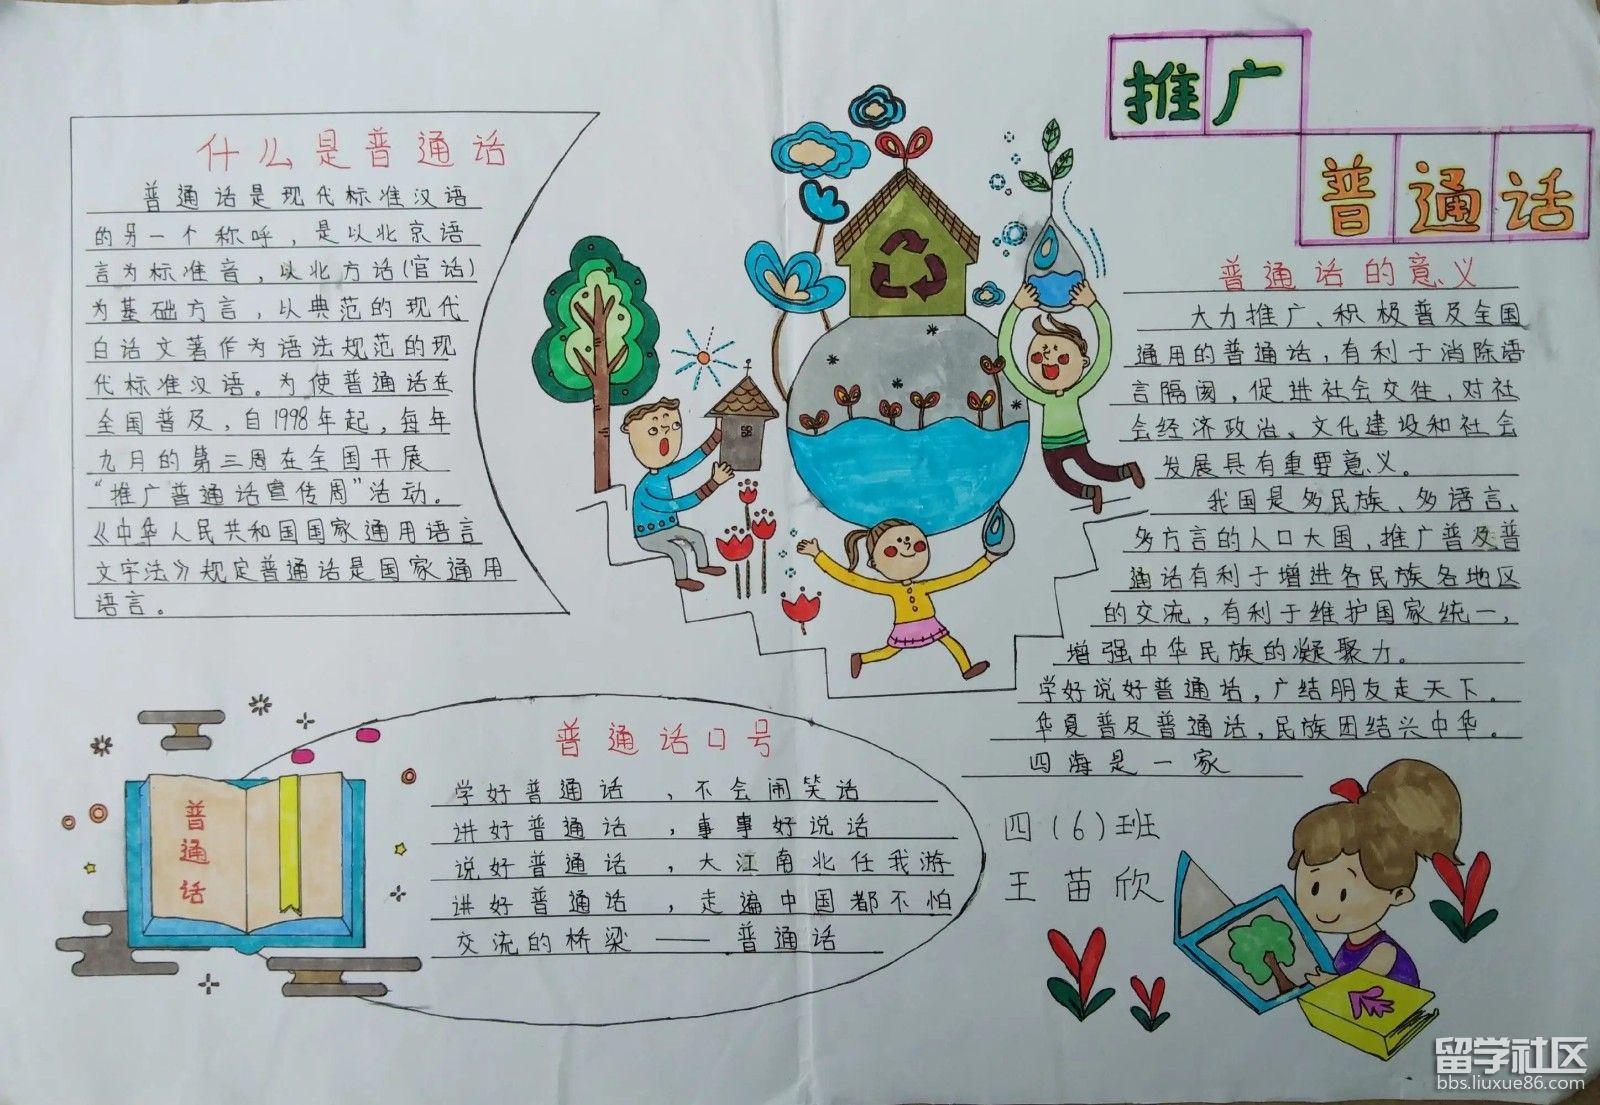 推广
普通话
什么是普通话
普通话是现代标准汉语
的另一个称呼，是以北京语
言为标准音，以北方话(官话)
为基础方言，以典范的现代
白话文著作为语法规范的现
代标准汉语。为使普通话在
全国普及，自1998年起，每年
九月的第三周在全国开展
“推广普通话宣传周”活动。
《中华人民共和国国家通用语言
文字法》规定普通话是国家通用
语言。
普通话的意义
大力推广、积极普及全国
通用的普通话，有利于消除语
言隔阂，促进社会交往，对社
会经济政治、文化建设和社会
发展具有重要意义。
我国是多民族、多语言、
多方言的人口大国，推广普及普
通话有利于增进各民族各地区
的交流，有利于维护国家统一，
增强中华民族的凝聚力。
学好说好普通话，广结朋友走天下。
华夏普及普通话，民族团结兴中华。
四海是一家
普通话口号
学好普通话，不会闹笑话
讲好普通话，事事好说话
说好普通话，大江南北任我游
讲好普通话，走遍中国都不怕
交流的桥梁——普通话
普通话
四(6)班
王苗欣
留学社区
bbs.liuxue86.com